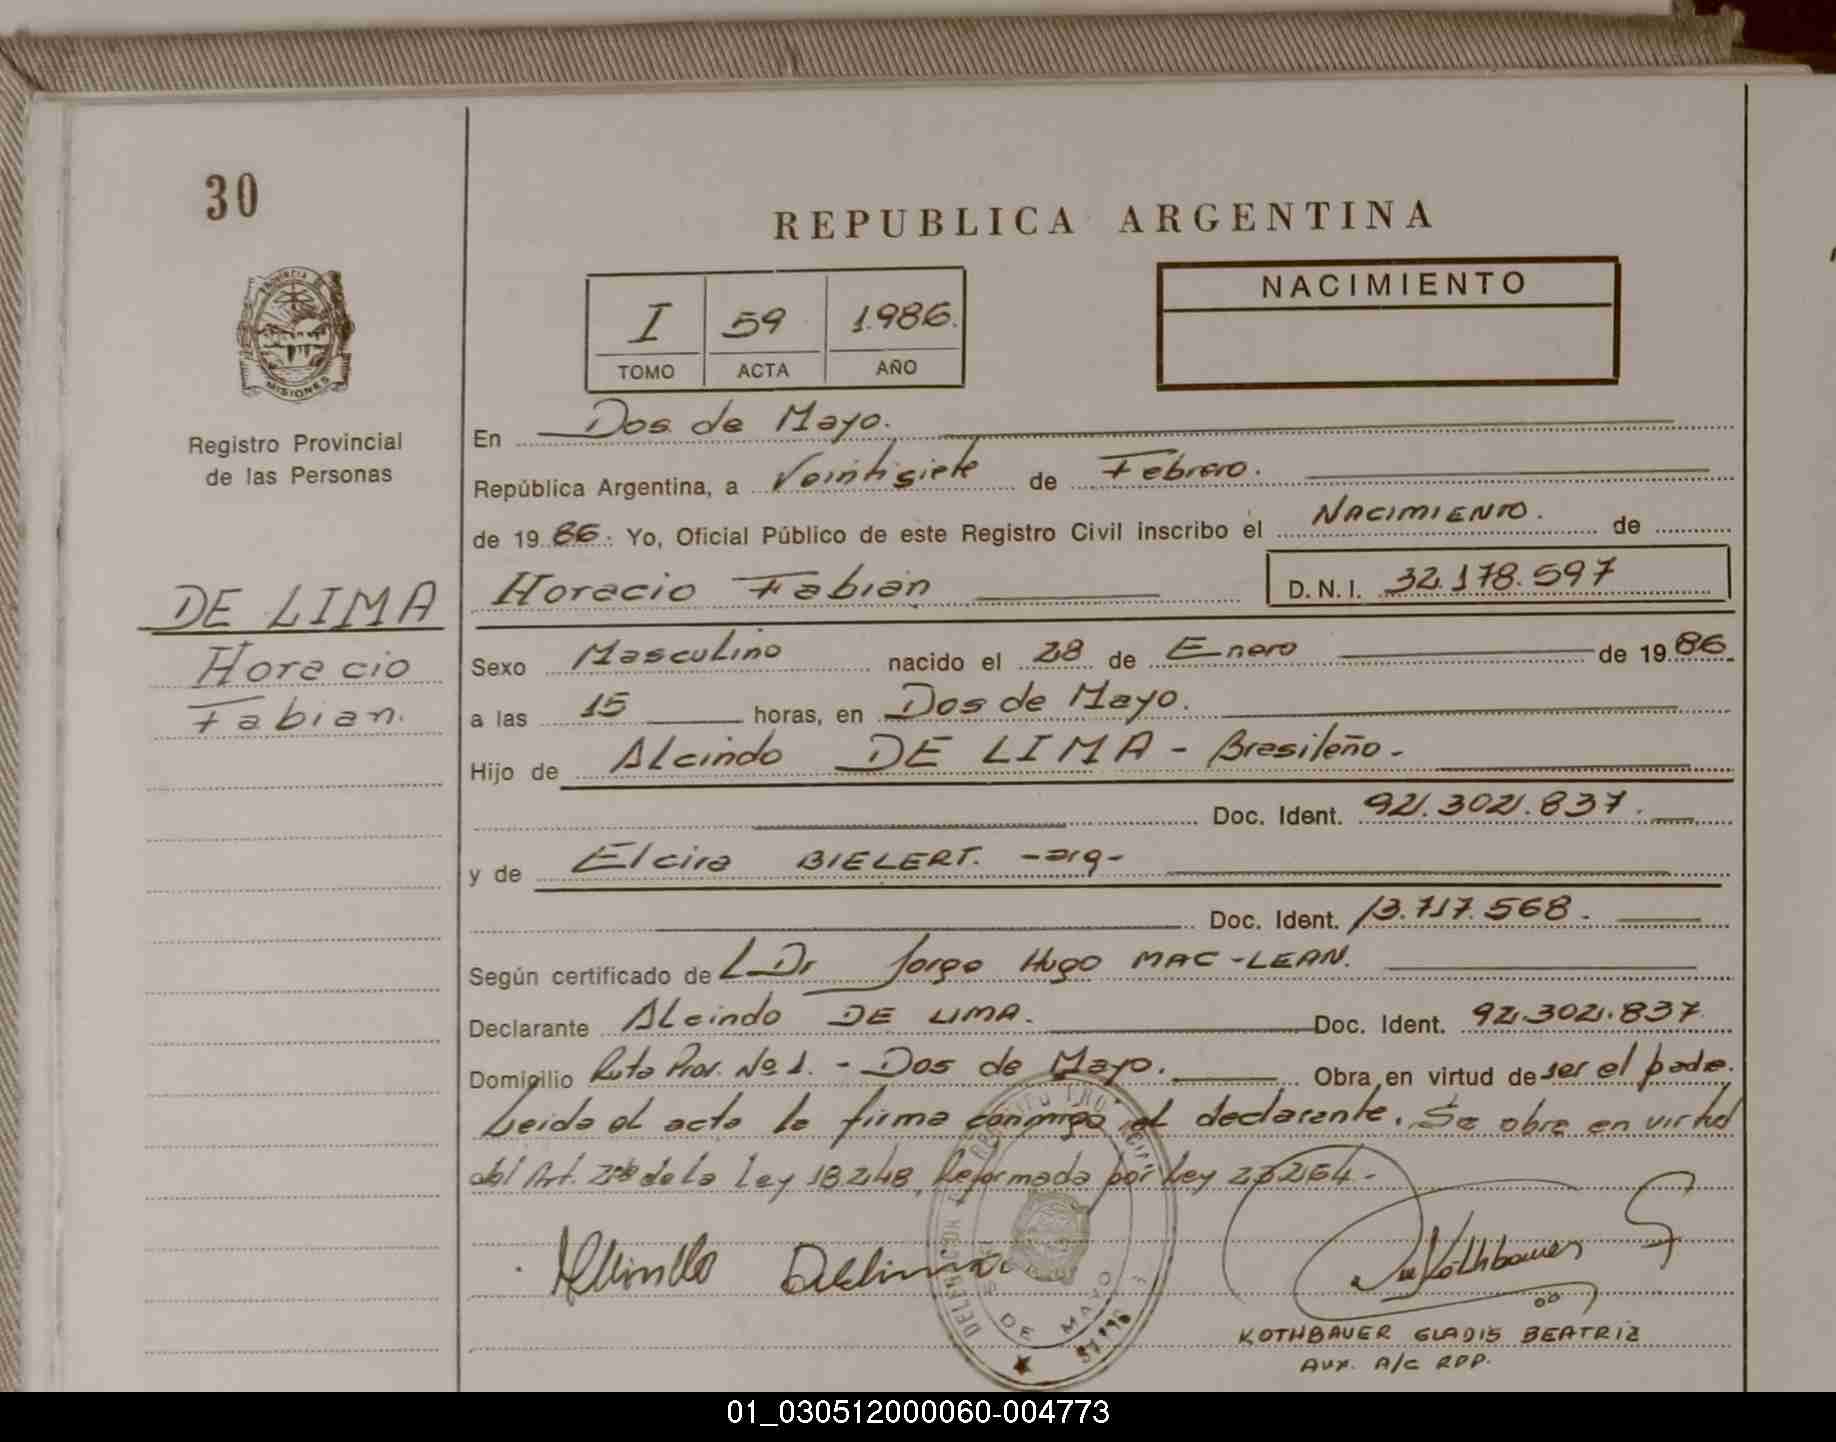 30
REPUBLICA ARGENTINA
PROVINCIA DE
MISIONES
Registro Provincial
de las Personas
I 59 1.986.
TOMO ACTA AÑO
NACIMIENTO
En Dos de Mayo.
República Argentina, a Veintisiete de Febrero.
de 19 86. Yo, Oficial Público de este Registro Civil inscribo el NACIMIENTO. de
DE LIMA
Horacio
Fabian.
Horacio Fabian D.N.I. 32.178.597
Sexo Masculino nacido el 28 de Enero de 19 86
a las 15 horas, en Dos de Mayo.
Hijo de Alcindo DE LIMA - Brasileño -
Doc. Ident. 92.302.837.
y de Elcira BIELERT. -arg-
Doc. Ident. 13.717.568.
Según certificado de Dr Jorge Hugo MAC-LEAN.
Declarante Alcindo DE LIMA. Doc. Ident. 92.302.837.
Domicilio Ruta Prov. Nº 1. - Dos de Mayo. Obra en virtud de ser el padre.
Leida el acta la firma conmigo el declarante. Se obra en virtud
del Art. de la Ley 18.248, Reformada por Ley
DE MAYO
Kothbauer
KOTHBAUER GLADIS BEATRIZ
AUX. A/C RPP.
01_030512000060-004773